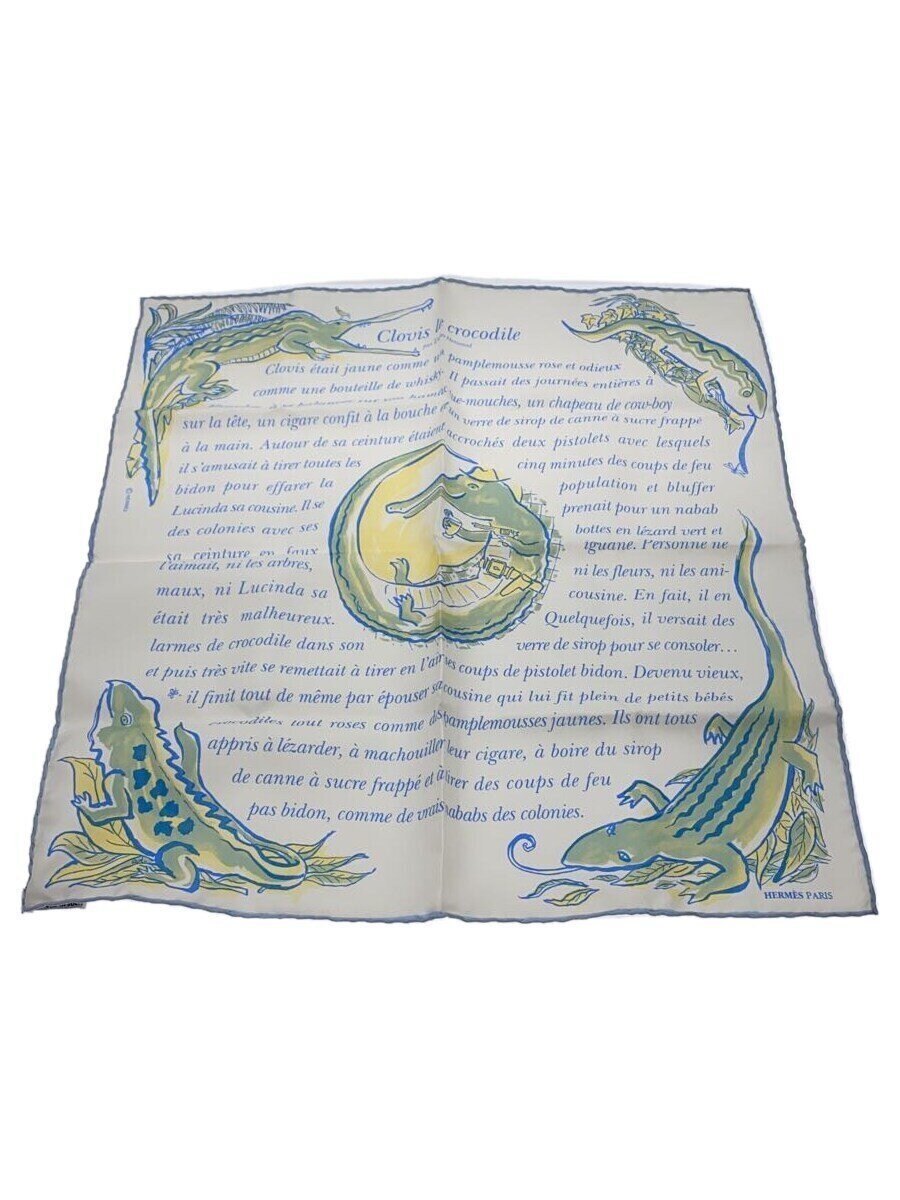 Clovis le crocodile
Clovis était jaune comme un pamplemousse rose et odieux
comme une bouteille de whisky. Il passait des journées entières à
mouches, un chapeau de cow-boy
sur la tête, un cigare confit à la bouche et un verre de sirop de canne à sucre frappé
à la main. Autour de sa ceinture étaient accrochés deux pistolets avec lesquels
il s'amusait à tirer toutes les cinq minutes des coups de feu
bidon pour effarer la population et bluffer
Lucinda sa cousine. Il se prenait pour un nabab
des colonies avec ses bottes en lézard vert et
sa ceinture en faux iguane. Personne ne
l'aimait, ni les arbres, ni les fleurs, ni les ani-
maux, ni Lucinda sa cousine. En fait, il en
était très malheureux. Quelquefois, il versait des
larmes de crocodile dans son verre de sirop pour se consoler...
et puis très vite se remettait à tirer en l'air ses coups de pistolet bidon. Devenu vieux,
il finit tout de même par épouser sa cousine qui lui fit plein de petits bébés
crocodiles tout roses comme des pamplemousses jaunes. Ils ont tous
appris à lézarder, à machouiller leur cigare, à boire du sirop
de canne à sucre frappé et à tirer des coups de feu
pas bidon, comme de vrais nababs des colonies.
HERMÈS PARIS